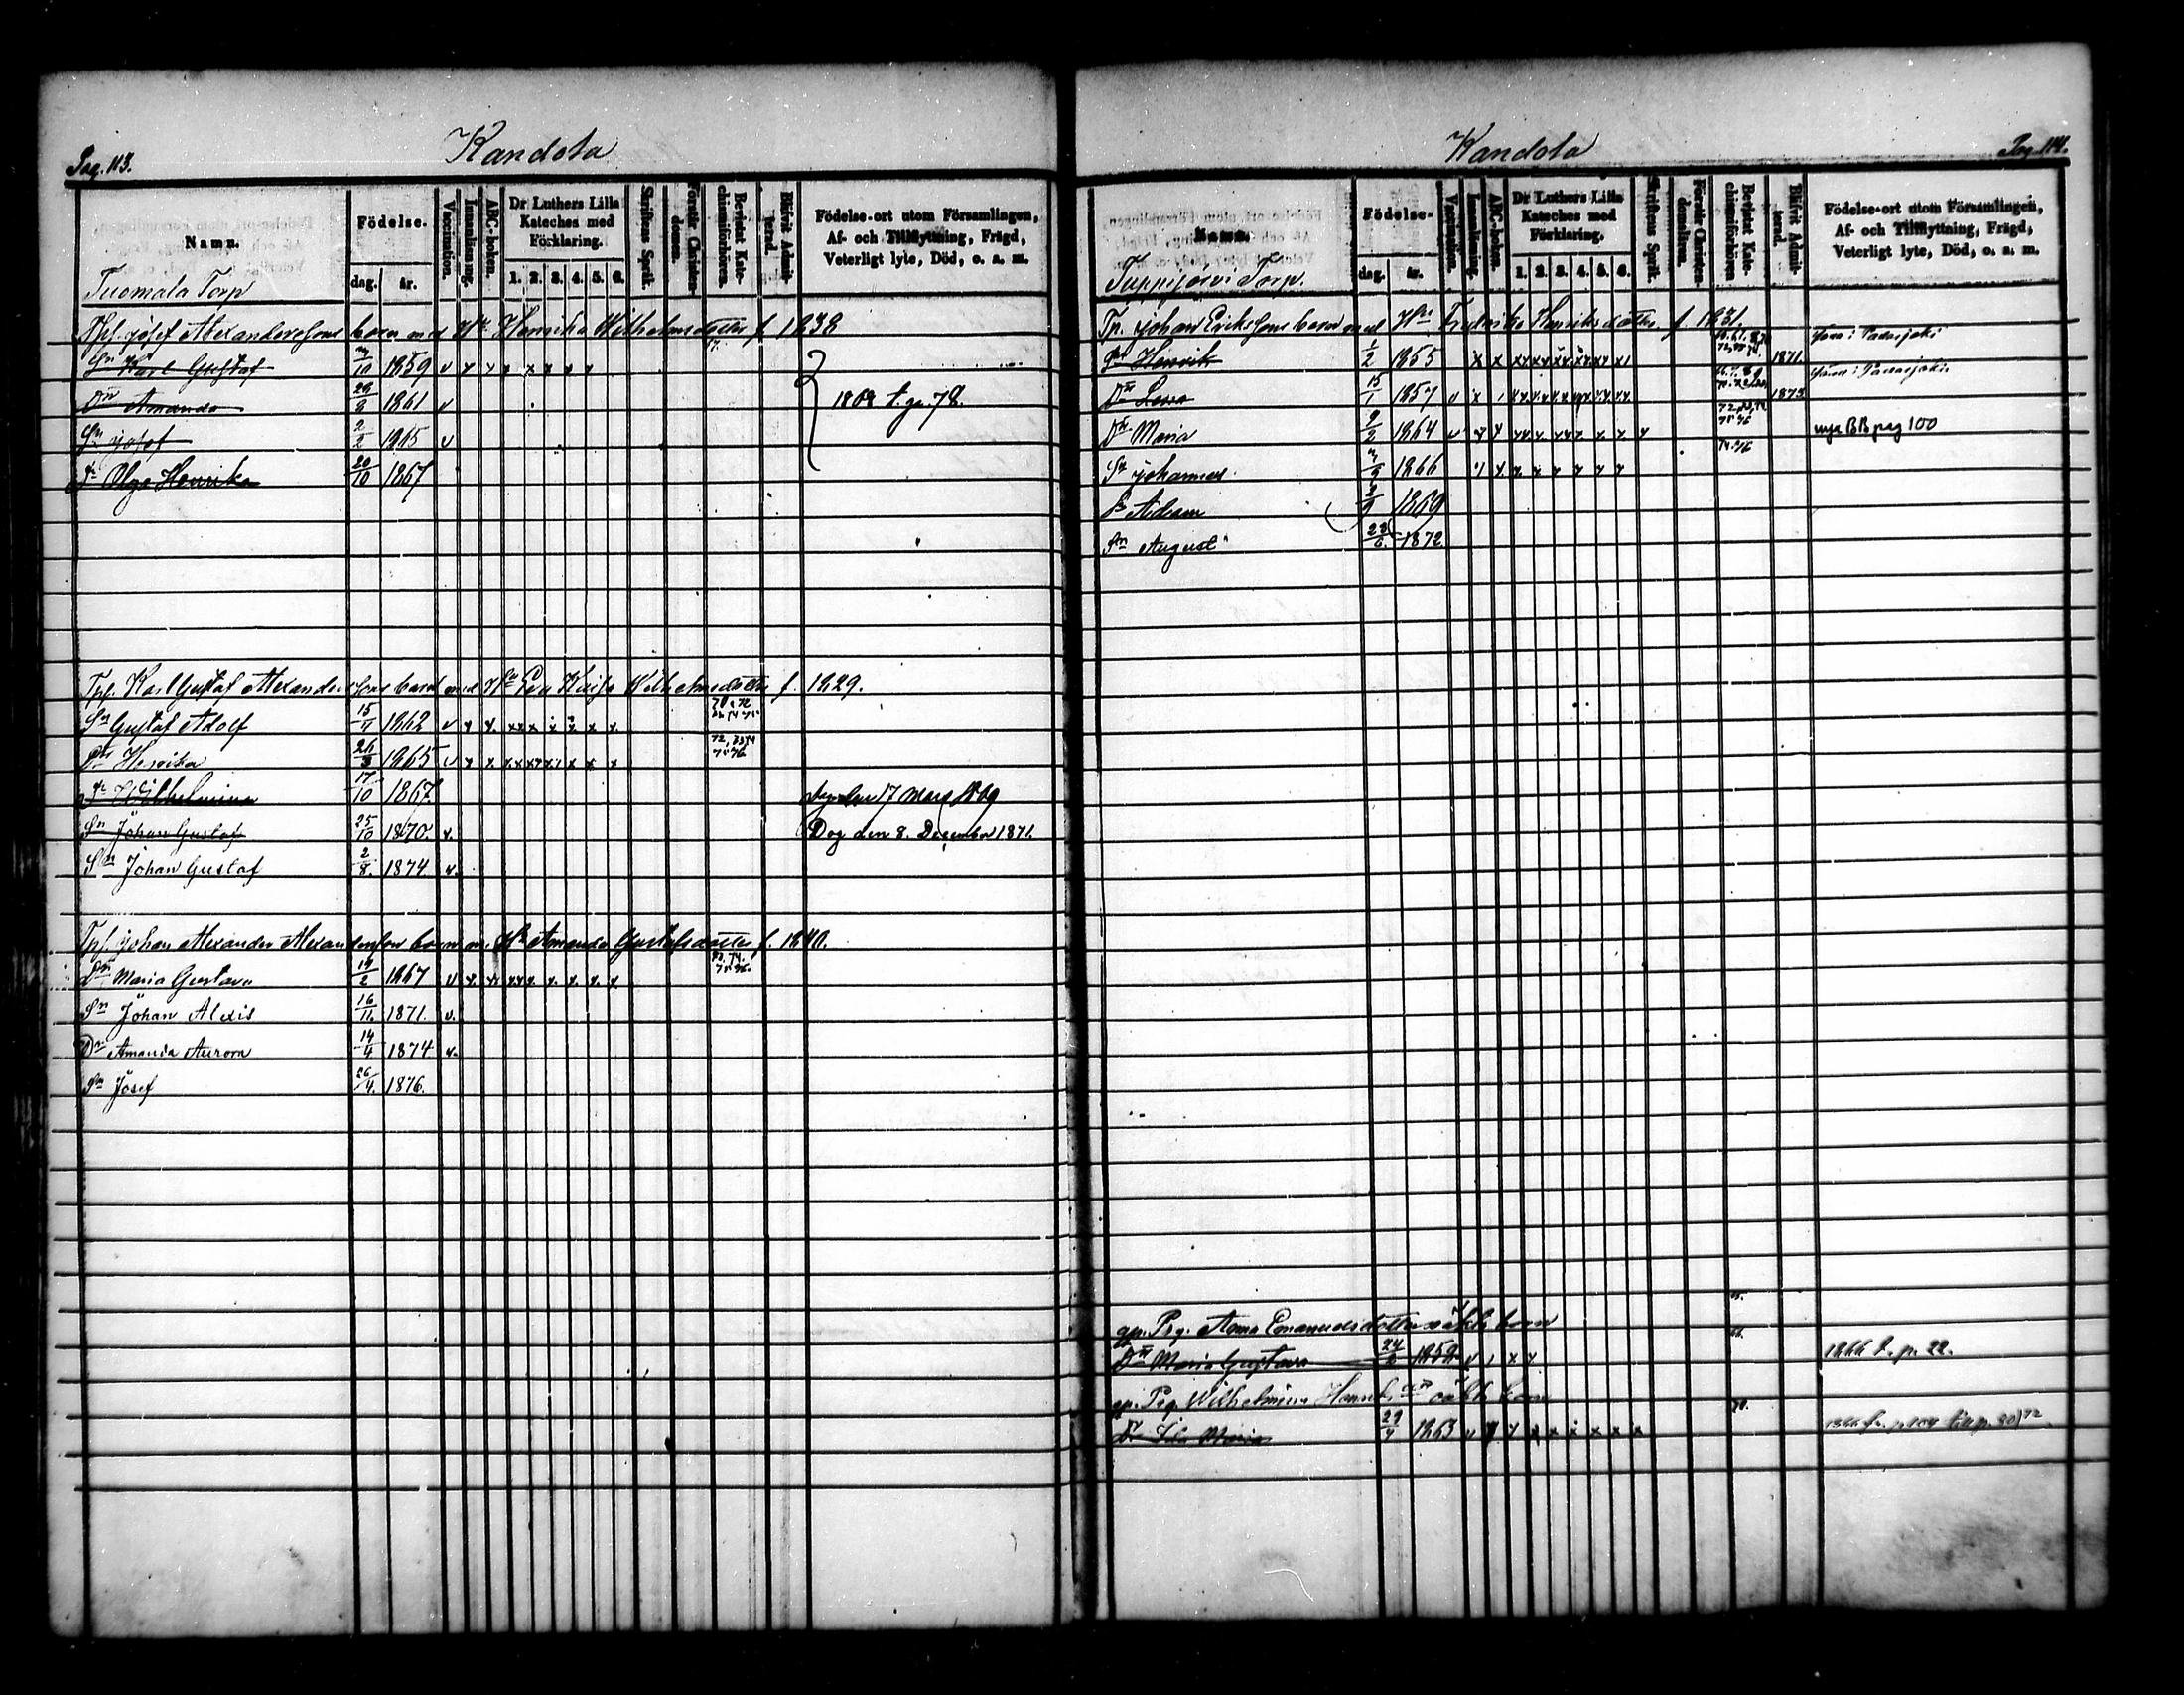 Pag. 113.
Kandola
Namn.
Födelse.
dag.
år.
Vaccination.
Innanläsning.
ABC-boken.
Dr Luthers Lilla Kateches med Förklaring.
1. 2. 3. 4. 5. 6.
Skriftens Språk.
Förstår Christendomen.
Bevistat Katechismiförhören.
Blifvit Admitterad.
Födelse-ort utom Församlingen, Af- och Tillflyttning, Frägd, Veterligt lyte, Död, o. a. m.
Tuomala Torp
Tpf. josef Alexandersons barn med Hu Henrika Wilhelmsdotter f. 1838
Sn Karl Gustaf 7/10 1859 v
Dtr Amanda 1861 v
1868 t. p. 78.
Sn josef 2/2 1865 v
Dr Olga Henrika 20/10 1867
Tpf. Karl Gustaf Alexandersons barn med Hu Eva Kaisa Wilhelmsdotter f. 1829.
Sn Gustaf Adolf 15/11 1862 v
Dtr Henrika 26/3 1865 v
Dr Wilhelmina 17/10 1867.
den 17 Mars 1869
Sn Johan Gustaf 25/10 1870. v.
Dog den 8. December 1871.
Sn Johan Gustaf 2/8. 1874 v.
Tpf. johan Alexander Alexandersson barn m. Hu Amanda Gustafsdotter f. 1840.
Dtr Maria Gustava 19/2 1867 v
Sn Johan Alexis 16/11. 1871. v.
Dtr Amanda Aurora 14/4 1874 v.
Sn Josef 26/4. 1876.
Kandola
Pag. 114.
Namn.
Födelse-
dag.
år.
Vaccination.
Innanläsning.
ABC-boken.
Dr Luthers Lilla Kateches med Förklaring.
1. 2. 3. 4. 5. 6.
Skriftens Språk.
Förstår Christendomen.
Bevistat Katechismiförhören
Blifvit Admitterad.
Födelse-ort utom Församlingen, Af- och Tillflyttning, Frägd, Veterligt lyte, Död, o. a. m.
Torp.
Tp. johan Ericksons barn med Hu Fredrika Henriksdotter f 1831.
Sn Henrik 1/2 1855 1871.
i Padasjoki
Dtr Lovisa 15/1 1857 v 1873
i Padasjoki
Dtr Maria 9/2 1864
nya BB pag 100
Sn johannes 1866
Sn Adam 1869
Sn August 28/6. 1872
gp. Pig. Anna Emanuelsdotters äkta barn
Dtr Maria Gustava 24/8 1859 v
1866 t. p. 22.
gp. Pig. Wilhelmina Henriks barn
Dr Maria 29/4 1863 v